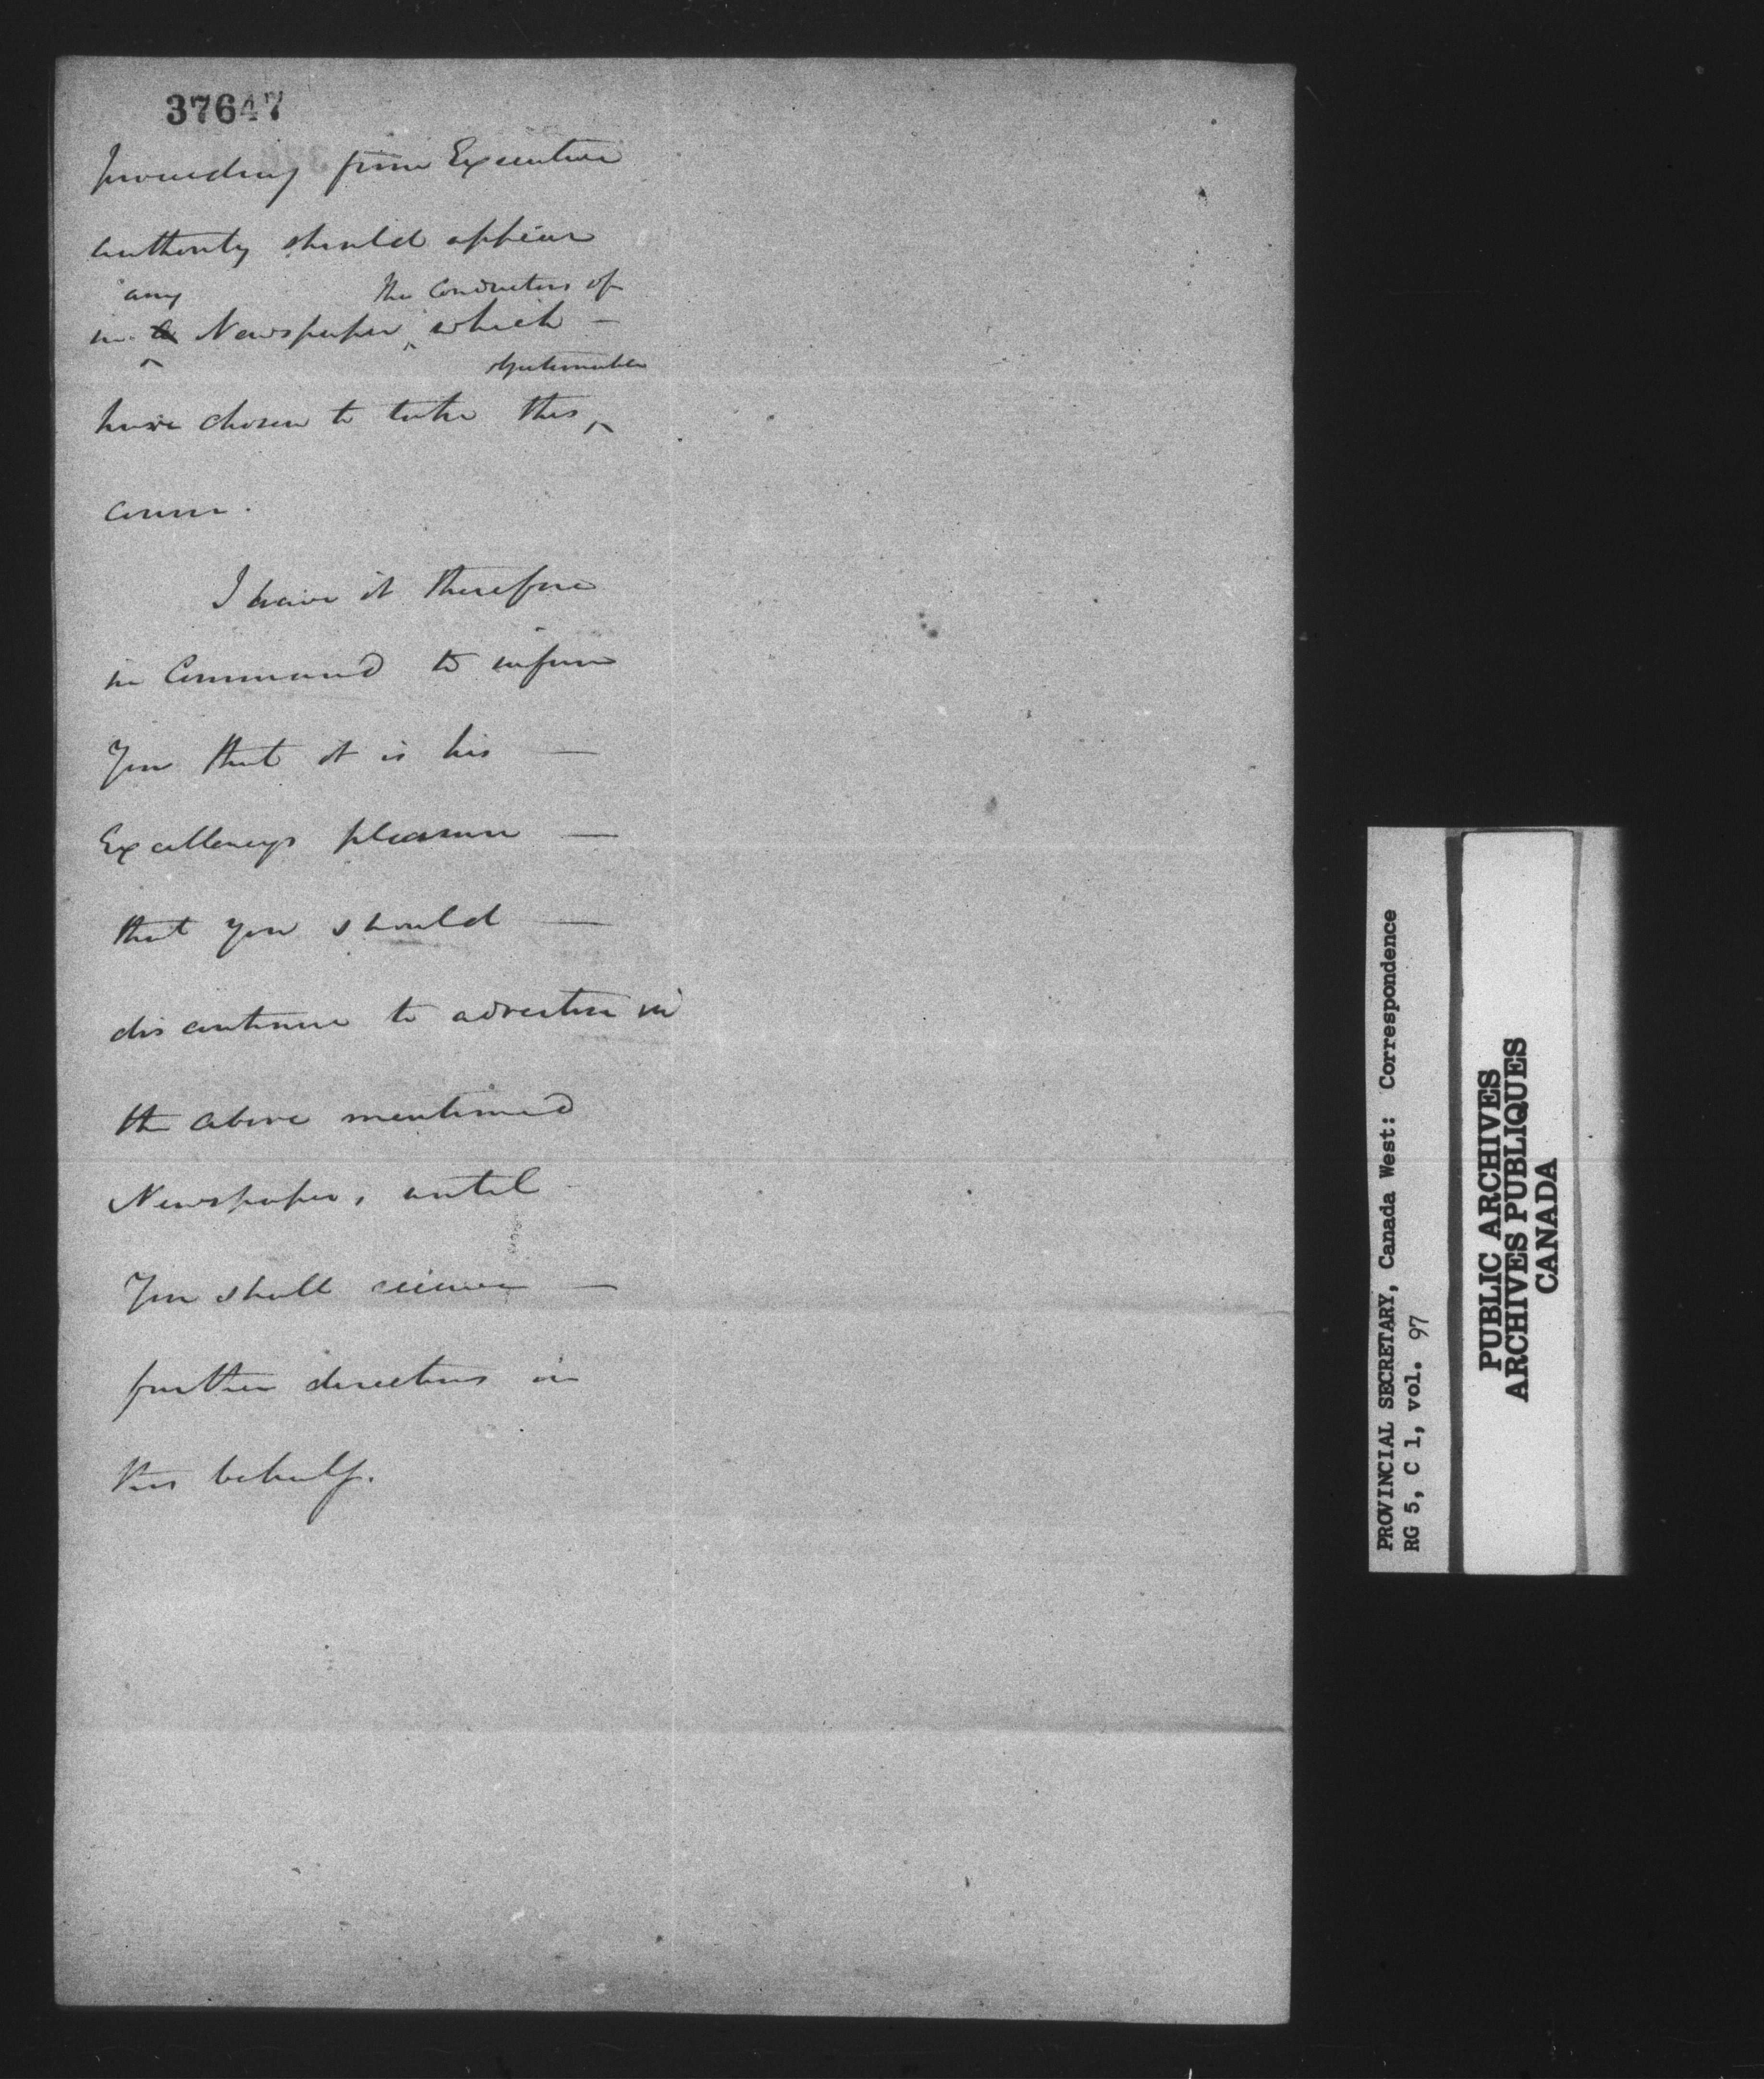 37647
proceeding from Executive
authority should appear
any the Conductors of
in a Newspaper, which —
objectionable
have chosen to take this
course.
I have it therefore
in Command to inform
You that it is his —
Excellencys pleasure —
that you should —
discontinue to advertise in
the above mentioned
Newspaper, until
You shall receive —
further directions in
this behalf.
PROVINCIAL SECRETARY, Canada West: Correspondence
RG 5, C 1, vol. 97
PUBLIC ARCHIVES
ARCHIVES PUBLIQUES
CANADA